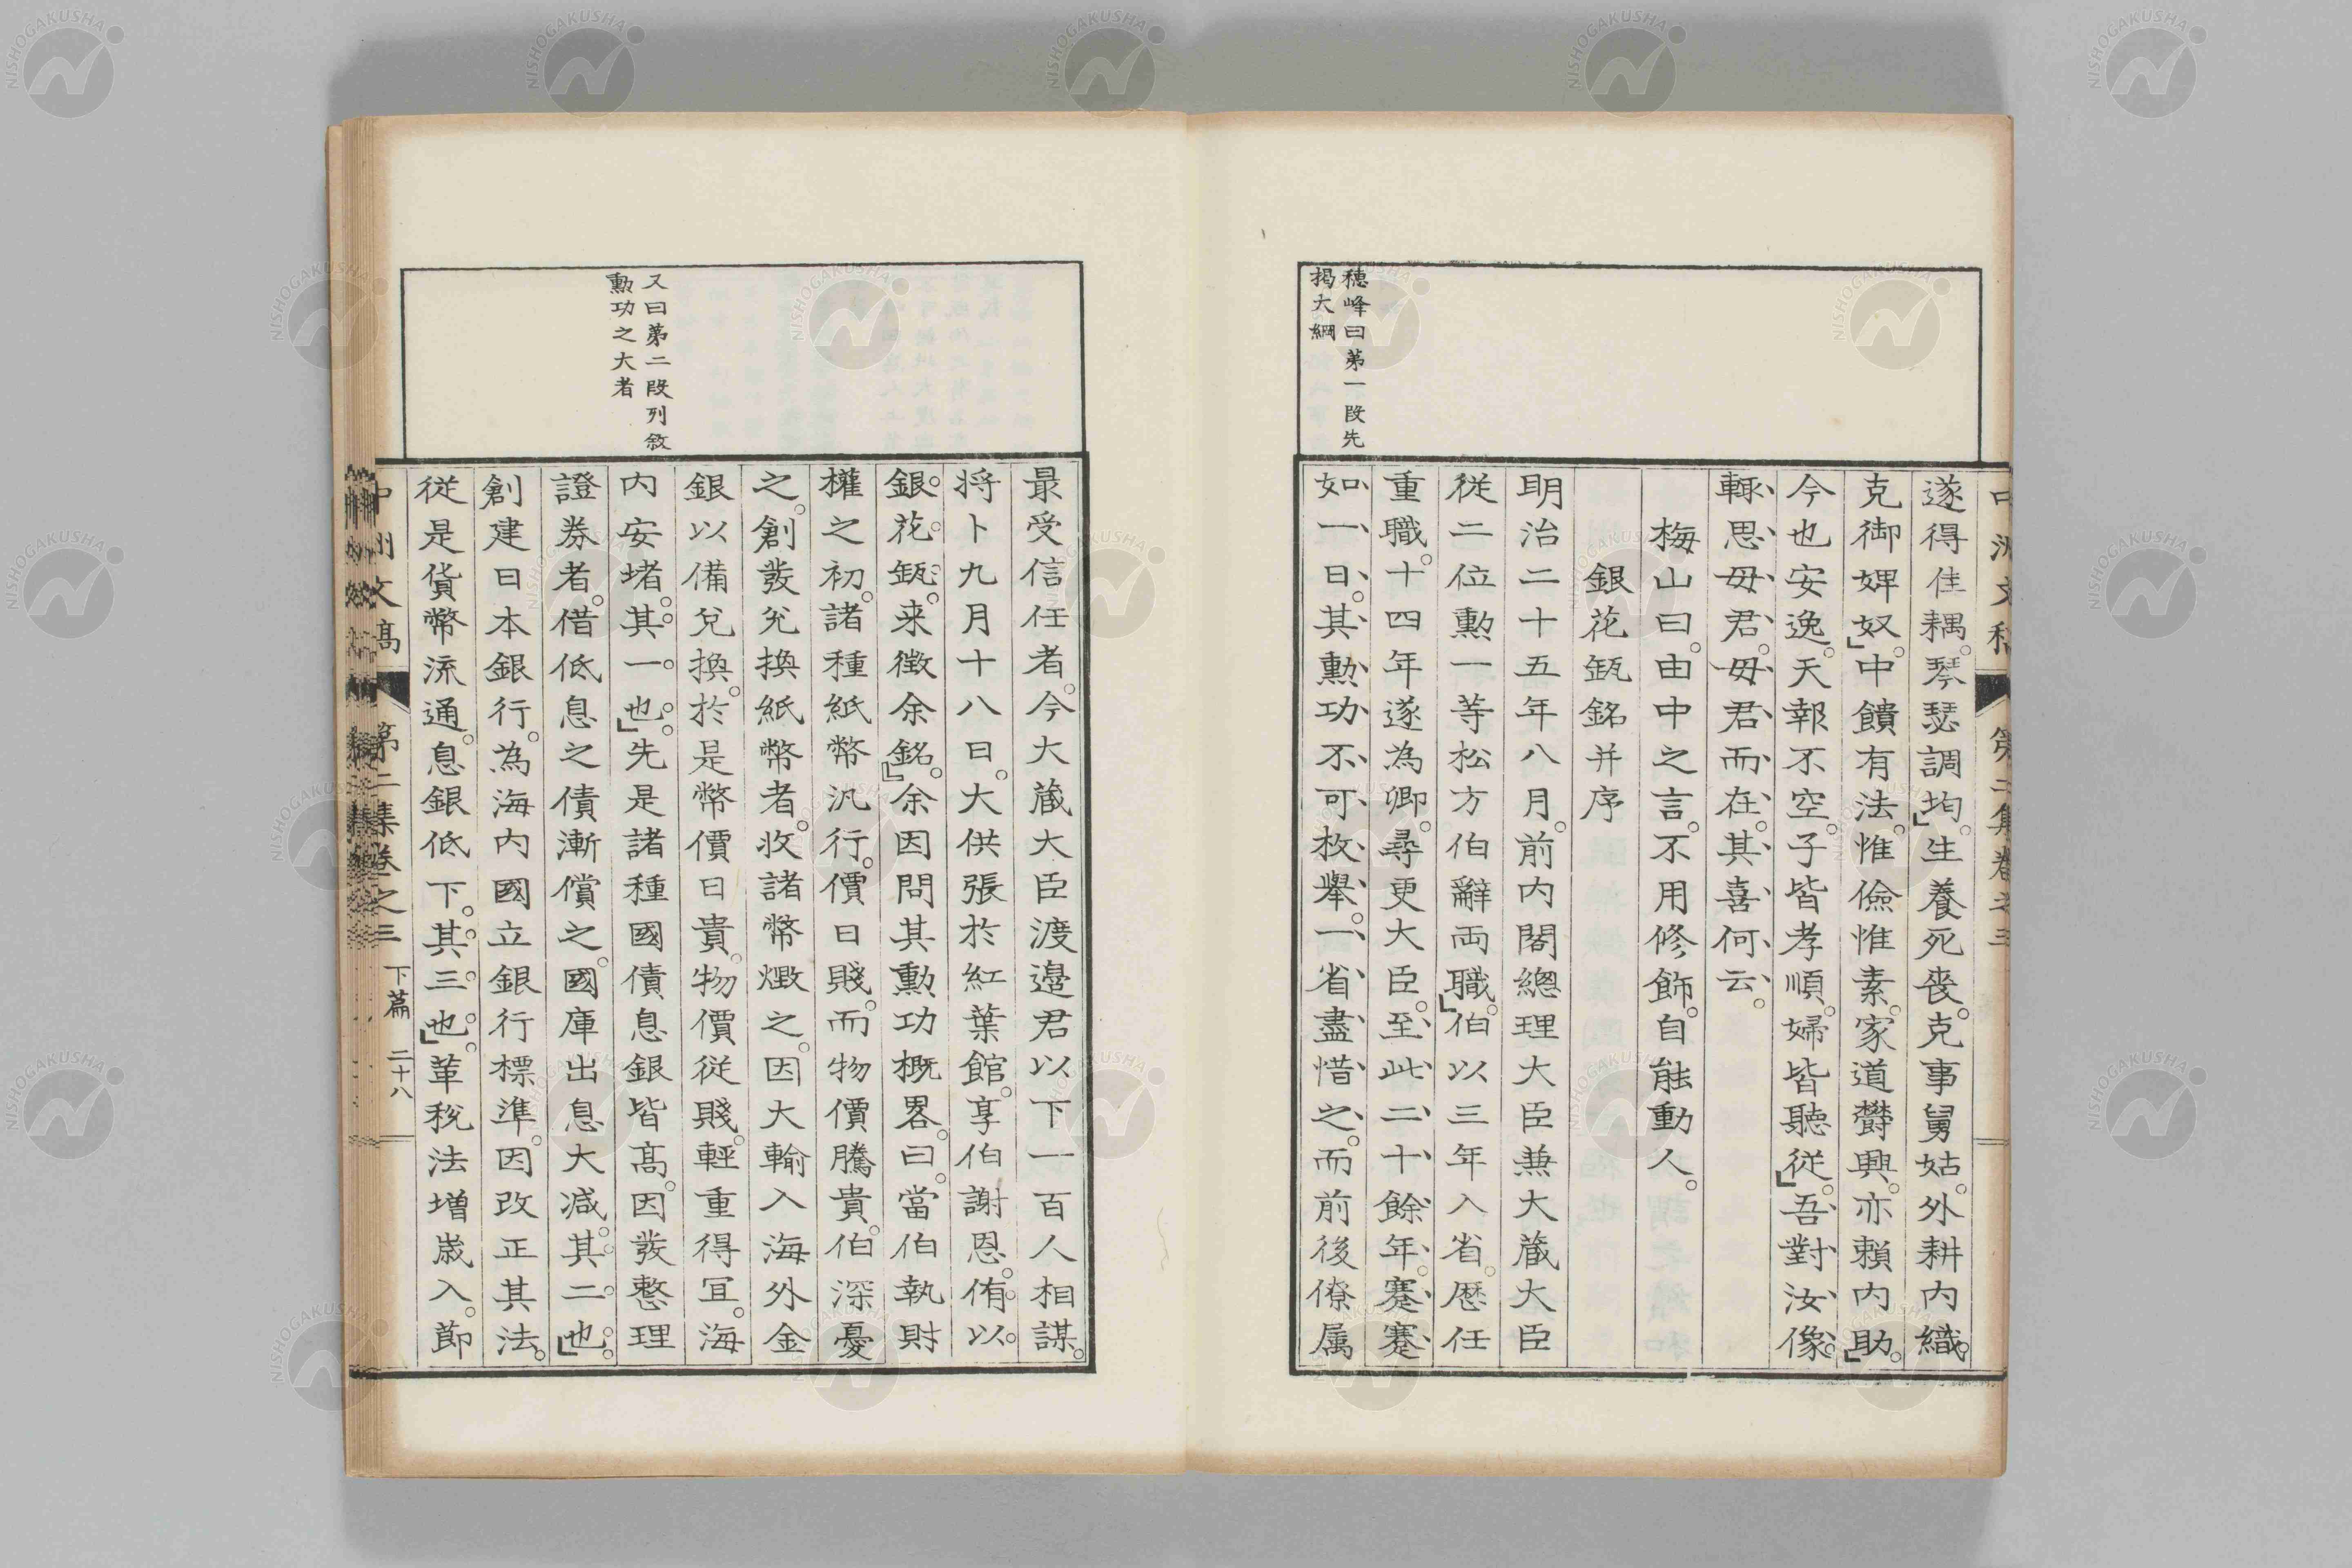 遂得佳耦。琴瑟調均。生養死喪。克事舅姑。外耕内織。
克御婢奴。中饋有法。惟儉惟素。家道欝興。亦頼内助。
今也安逸。天報不空。子皆孝順。婦皆聽從。吾對汝像。
輙思毋君。毋君而在。其喜何云。
梅山曰。由中之言。不用修飾。自能動人。
銀花瓶銘并序
明治二十五年八月。前内閣總理大臣兼大藏大臣
從二位勲一等松方伯辭両職。伯以三年入省。歴任
重職。十四年遂為卿。尋更大臣。至此二十餘年。蹇蹇
如一日。其勲功不可枚擧。一省盡惜之。而前後僚属
穂峰曰第一段先
掲大綱
最受信任者。今大藏大臣渡邉君以下一百人相謀。
将卜九月十八日。大供張於紅葉館。享伯謝恩。侑以
銀花瓶。来徴余銘。余因問其勲功概畧。曰。當伯執財
權之初。諸種紙幣汎行。價日賤。而物價騰貴。伯深憂
之。創發兌換紙幣者。收諸幣燬之。因大輸入海外金
銀以備兌換。於是幣價日貴。物價從賤。輕重得冝。海
内安堵。其一也。先是諸種國債息銀皆髙。因發整理
證券者。借低息之債漸償之。國庫出息大减。其二也。
創建日本銀行。為海内國立銀行標準。因改正其法。
從是貨幣流通。息銀低下。其三也。革税法増歳入。節
又曰第二段列敘
勲功之大者
中洲文稿 第二集卷之三
中洲文稿 第二集卷之三 下篇 二十八
NISHOGAKUSHA